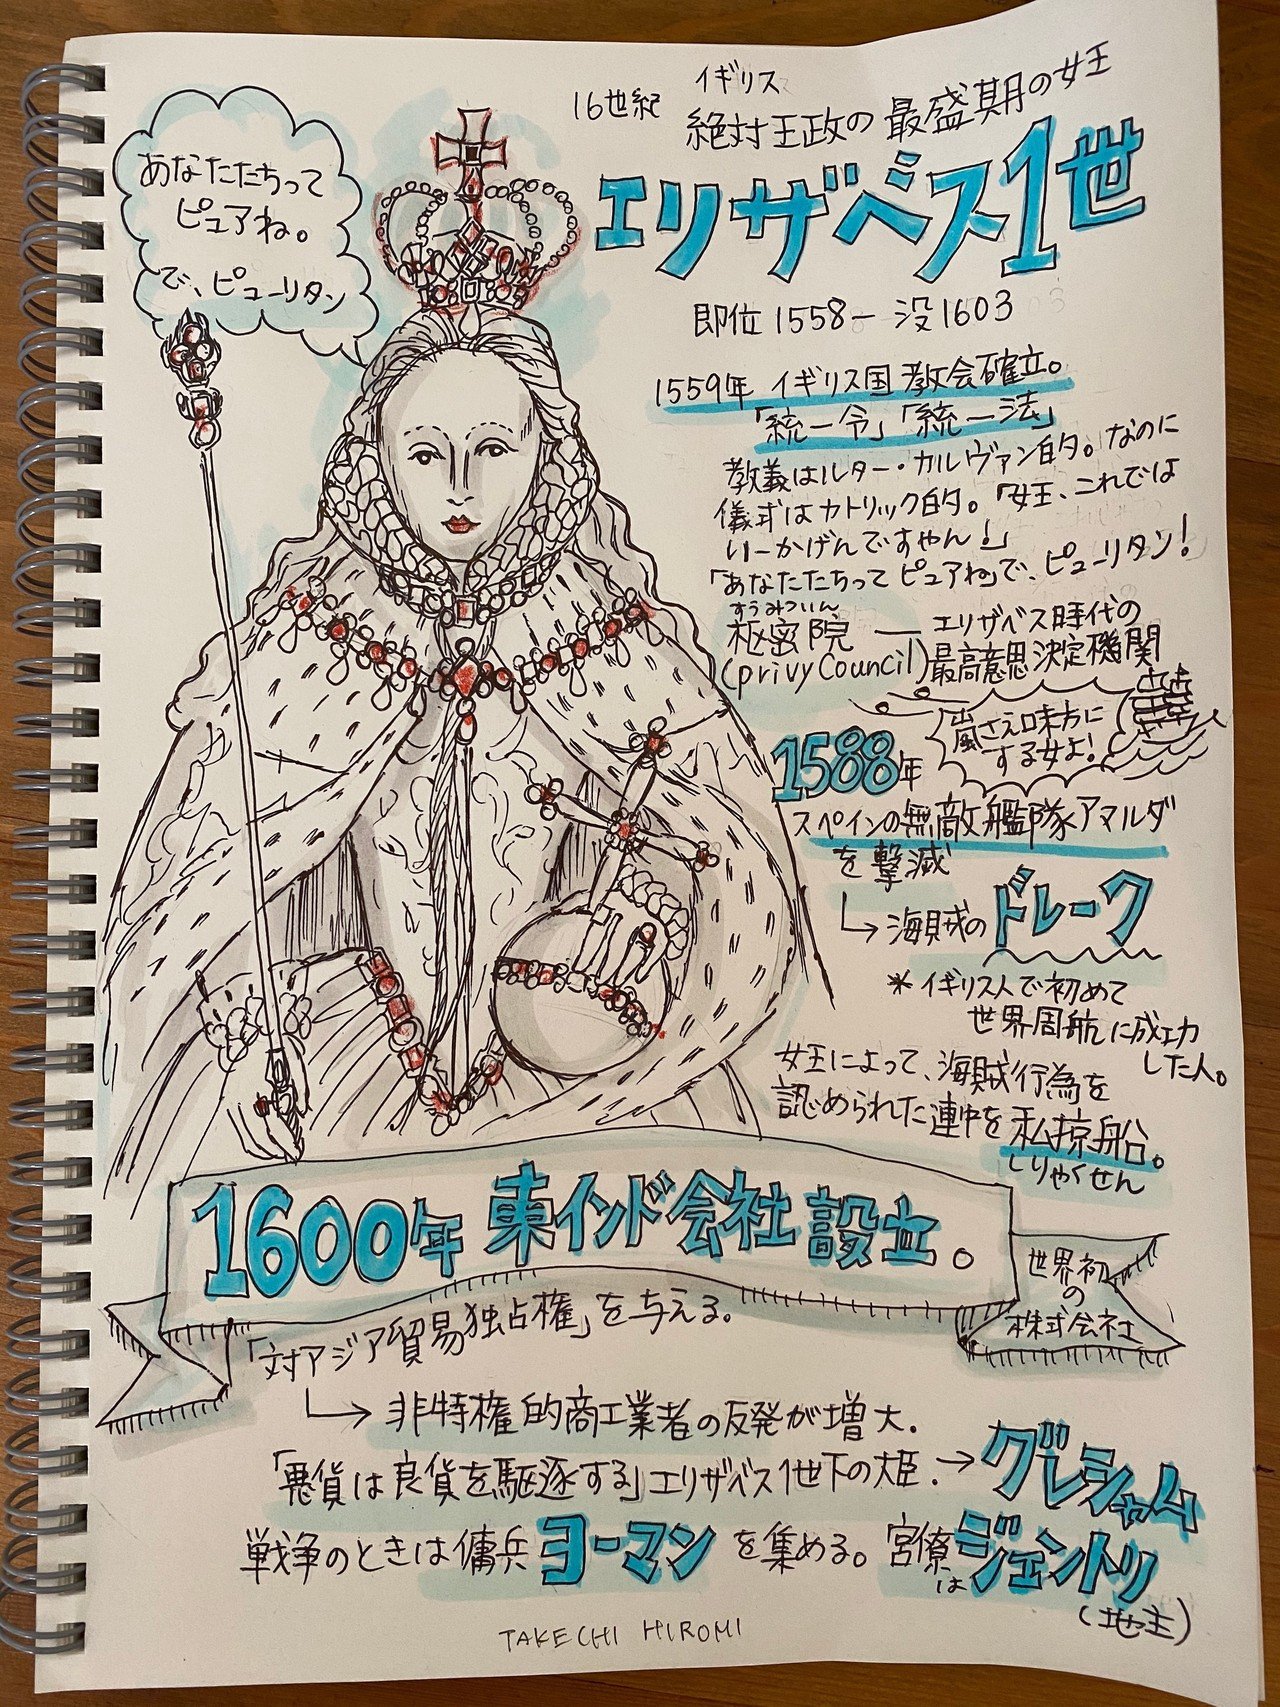 16世紀 イギリス
絶対王政の最盛期の女王
エリザベス1世
即位1558ー没1603
あなたたちって
ピュアね。
で、ピューリタン
1559年 イギリス国教会確立。
「統一令」「統一法」
教義はルター・カルヴァン的。なのに
儀式はカトリック的。「女王、これでは
いーかげんですやん!」
「あなたたちってピュアね」で、ピューリタン!
すうみついん
枢密院 ー エリザベス時代の
(privy Council) 最高意思決定機関
嵐さえ味方に
する女よ!
1588年
スペインの無敵艦隊アマルダ
を撃滅
↳ 海賊のドレーク
*イギリス人で初めて
世界周航に成功
した人。
女王によって、海賊行為を
認められた連中を私掠船。
しりゃくせん
1600年 東インド会社設立。
世界初
の
株式会社
「対アジア貿易独占権」を与える。
↳ 非特権的商工業者の反発が増大.
「悪貨は良貨を駆逐する」エリザベス1世下の大臣.→グレシャム
戦争のときは傭兵ヨーマンを集める。宮僚はジェントリ
(地主)
TAKECHI HIROMI